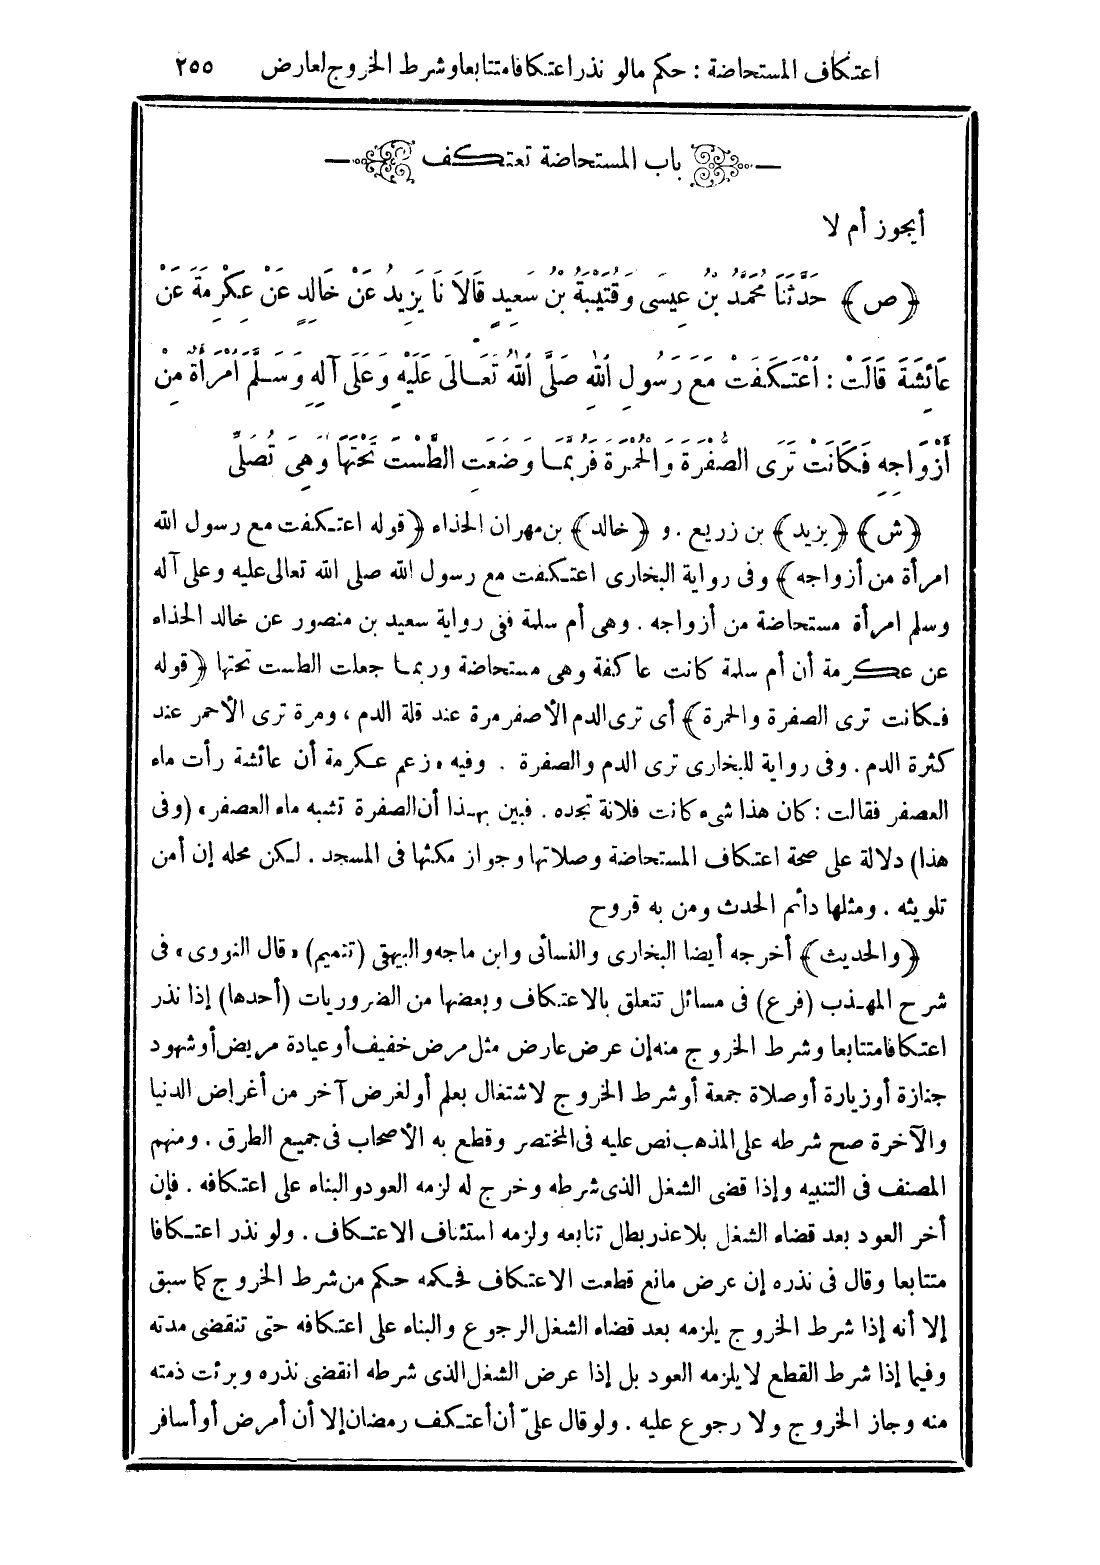 اعتكاف المستحاضة : حكم مالو نذر اعتكافا متتابعا وشرط الخروج لعارض ٢٥٥
باب المستحاضة تعتكف
أيجوز أم لا
﴿ص﴾ حَدَّثَنَا مُحَمَّدُ بْنُ عِيسَى وَقُتَيْبَةُ بْنُ سَعِيدٍ قَالاَ نَا يَزِيدُ عَنْ خَالِدٍ عَنْ عِكْرِمَةَ عَنْ
عَائِشَةَ قَالَتْ : اعْتَكَفَتْ مَعَ رَسُولِ اللهِ صَلَّى اللهُ تَعَالَى عَلَيْهِ وَعَلَى آلِهِ وَسَلَّمَ امْرَأَةٌ مِنْ
أَزْوَاجِهِ فَكَانَتْ تَرَى الصُّفْرَةَ وَالْحُمْرَةَ فَرُبَّمَا وَضَعَتِ الطَّسْتَ تَحْتَهَا وَهِىَ تُصَلِّى
﴿ش﴾ ﴿يزيد﴾ بن زريع . و ﴿خالد﴾ بن مهران الحذاء ﴿قوله اعتكفت مع رسول الله
امرأة من أزواجه﴾ وفى رواية البخارى اعتكفت مع رسول الله صلى الله تعالى عليه وعلى آله
وسلم امرأة مستحاضة من أزواجه . وهى أم سلمة ففى رواية سعيد بن منصور عن خالد الحذاء
عن عكرمة أن أم سلمة كانت عاكفة وهى مستحاضة وربما جعلت الطست تحتها ﴿قوله
فكانت ترى الصفرة والحمرة﴾ أى ترى الدم الأصفر مرة عند قلة الدم ، ومرة ترى الأحمر عند
كثرة الدم . وفى رواية للبخارى ترى الدم والصفرة . وفيه «زعم عكرمة أن عائشة رأت ماء
العصفر فقالت : كان هذا شىء كانت فلانة تجده . فبين بهذا أن الصفرة تشبه ماء العصفر» (وفى
هذا) دلالة على صحة اعتكاف المستحاضة وصلاتها وجواز مكثها فى المسجد . لكن محله إن أمن
تلويثه . ومثلها دائم الحدث ومن به قروح
﴿والحديث﴾ أخرجه أيضا البخارى والنسائى وابن ماجه والبيهقى (تتميم) «قال النووى» فى
شرح المهذب (فرع) فى مسائل تتعلق بالاعتكاف وبعضها من الضروريات (أحدها) إذا نذر
اعتكافا متتابعا وشرط الخروج منه إن عرض عارض مثل مرض خفيف أو عيادة مريض أو شهود
جنازة أو زيارة أو صلاة جمعة أو شرط الخروج لاشتغال بعلم أو لغرض آخر من أغراض الدنيا
والآخرة صح شرطه على المذهب نص عليه فى المختصر وقطع به الأصحاب فى جميع الطرق . ومنهم
المصنف فى التنبيه وإذا قضى الشغل الذى شرطه وخرج له لزمه العود والبناء على اعتكافه . فإن
أخر العود بعد قضاء الشغل بلا عذر بطل تتابعه ولزمه استئناف الاعتكاف . ولو نذر اعتكافا
متتابعا وقال فى نذره إن عرض مانع قطعت الاعتكاف فحكمه حكم من شرط الخروج كما سبق
إلا أنه إذا شرط الخروج يلزمه بعد قضاء الشغل الرجوع والبناء على اعتكافه حتى تنقضى مدته
وفيما إذا شرط القطع لا يلزمه العود بل إذا عرض الشغل الذى شرطه انقضى نذره وبرئت ذمته
منه وجاز الخروج ولا رجوع عليه . ولو قال علىّ أن أعتكف رمضان إلا أن أمرض أو أسافر